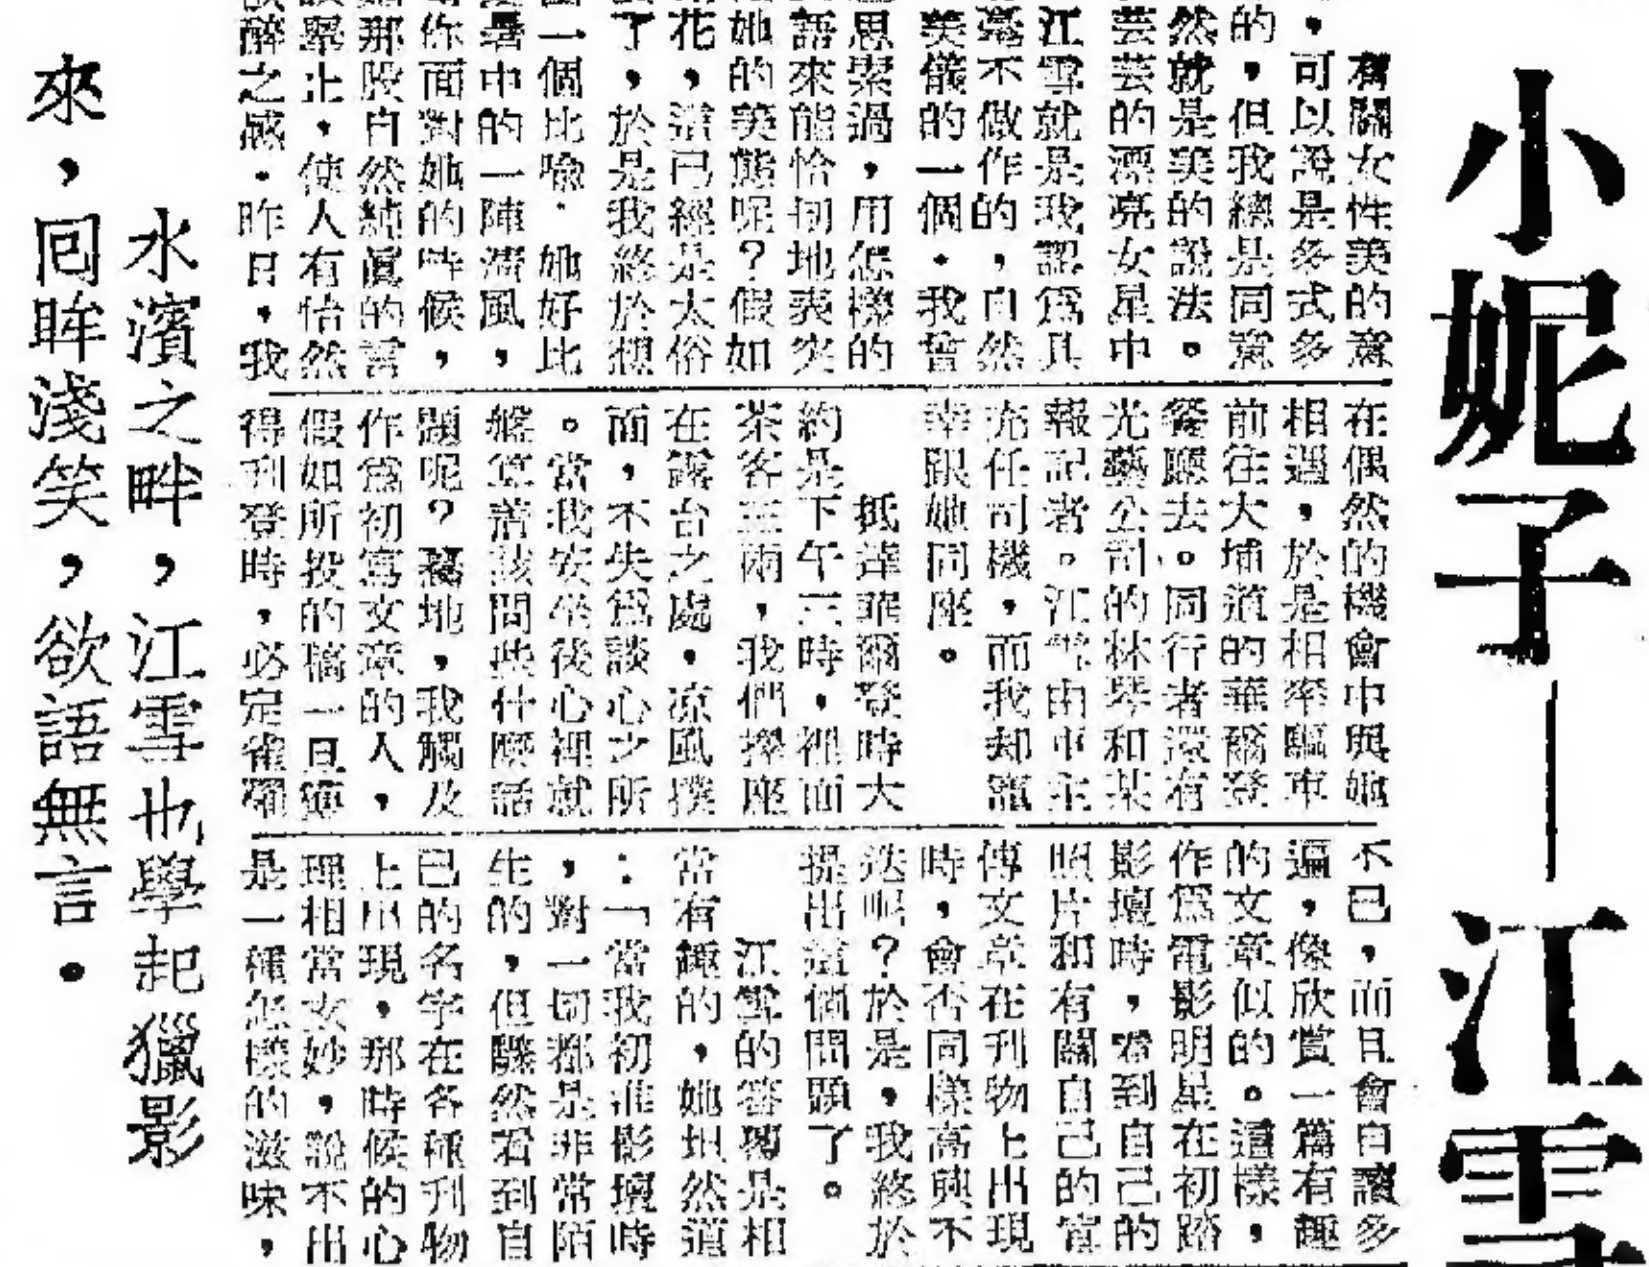 小妮子—江雪
有關女性美的意
,可以說是多式多
的,但我總是同意
然就是美的說法。
芸芸的漂亮女星中
江雪就是我認爲具
毫不做作的,自然
美儀的一個.我曾
思索過,用怎樣的
語來能恰切地表突
她的美態呢?假如
花,這已經是太俗
了,於是我終於想
一個比喩.她好比
暑中的一陣淸風,
你面對她的時候,
那股自然純眞的言
舉止,使人有怡然
醉之感.昨日,我
在偶然的機會中與她
相遇,於是相率驅車
前往大埔道的華爾登
餐廳去。同行者還有
光藝公司的林琴和某
報記者。江雪由車主
充任司機,而我却寵
幸跟她同座。
抵達華爾登時大
約是下午三時,裡面
茶客三兩,我們擇座
在露台之處,凉風撲
面,不失爲談心之所
。當我安坐後心裡就
盤算著該問些什麼話
題呢?驀地,我觸及
作爲初寫文章的人,
假如所投的稿一旦獲
得刊登時,必定雀躍
不已,而且會自讀多
遍,像欣賞一篇有趣
的文章似的。這樣,
作爲電影明星在初踏
影壇時,看到自己的
照片和有關自己的宣
傳文章在刊物上出現
時,會否同樣高興不
迭呢?於是,我終於
提出這個問題了。
江雪的答覆是相
當有趣的,她坦然道
:「當我初進影壇時
,對一切都是非常陌
生的,但驟然看到自
己的名字在各種刊物
上出現,那時候的心
理相當玄妙,說不出
是一種怎樣的滋味,
水濱之畔,江雪也學起獵影
來,囘眸淺笑,欲語無言。